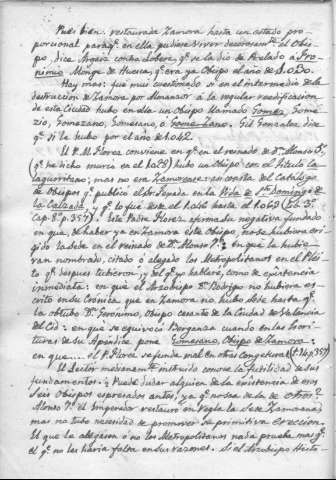 Pues bien, restaurada Zamora hasta un estado pro-
porcional paraq.e en ella pudiese vivir decorosam.te el Obis-
po, dice Argaiz contra dobera, q.e se la dio de Prelado a Fro-
nimio Monge de Huesca, q.e era ya Obispo el año de 1.0
Hay mas: fue mui cuestionado si en el intermedio de la
destruccion de Zamora por Almanzor a la regular reedificacion
de esta Ciudad hubo en ella un Obispo llamado Gomez, Gome-
zio, Gomezano, Gomesano, ó Gomez-Zano. Gil Gonzalez, dice
q.e si la hubo por el año de 1.042.
El P. M. Florez conviene en q.e en el reinado de D.n Alonso 5.º
(q.e he dicho murio en el 1.028) hubo un Obispo con el titulo
mas no era Zamorense: en del Catalogo
de Obispos q.e publicó el Sr. Tejada en la Vida de S.to Domingo de
la Calzada, y q.e lo fue desde el hasta el 1.0 (
Cap. 8.º p. 357) Este Padre Florez afirma su negativa fundado
en que, de haber ya en Zamora este Obispo, no se hubiera eri-
gido la Sede en el reinado de D.n Alonso 7.º: en que la hubie-
ran nombrado, citado ó alegado los Metropolitanos en el Plei-
to q.e despues tubieron, y del q.e hablaré, como de existencia
inmediata: en que el Arzobispo D.n Rodrigo no hubiera es-
crito en su Crónica que en Zamora no hubo Sede hasta q.e
la obtubo D.n Geronimo, Obispo cesante de la Ciudad de Valencia
del Cid: en que se equivocó Berganza cuando en las Escri-
turas de su Apendice pone Gomesano, Obispo de Zamora:
en que... el P. Florez se funda mal En otras Congeturas (t. 14 p. 357)
El Lector medianam.te instruido conoce la futilidad de sus
fundamentos: ¿Puede dudar alguien de la existencia de
Seis Obispos espresados antes, ya q.e no sea de la de otros?
Alonso 7.º el Emperador restauró en regla la Sede Zamorana;
mas no tubo necesidad de promover su primitiva ereccion.
El que la alegasen ó no los Metropolitanos nada prueba, mas q.e
el q.e no les haria falta en sus razones. Si el Arzobispo Histo-